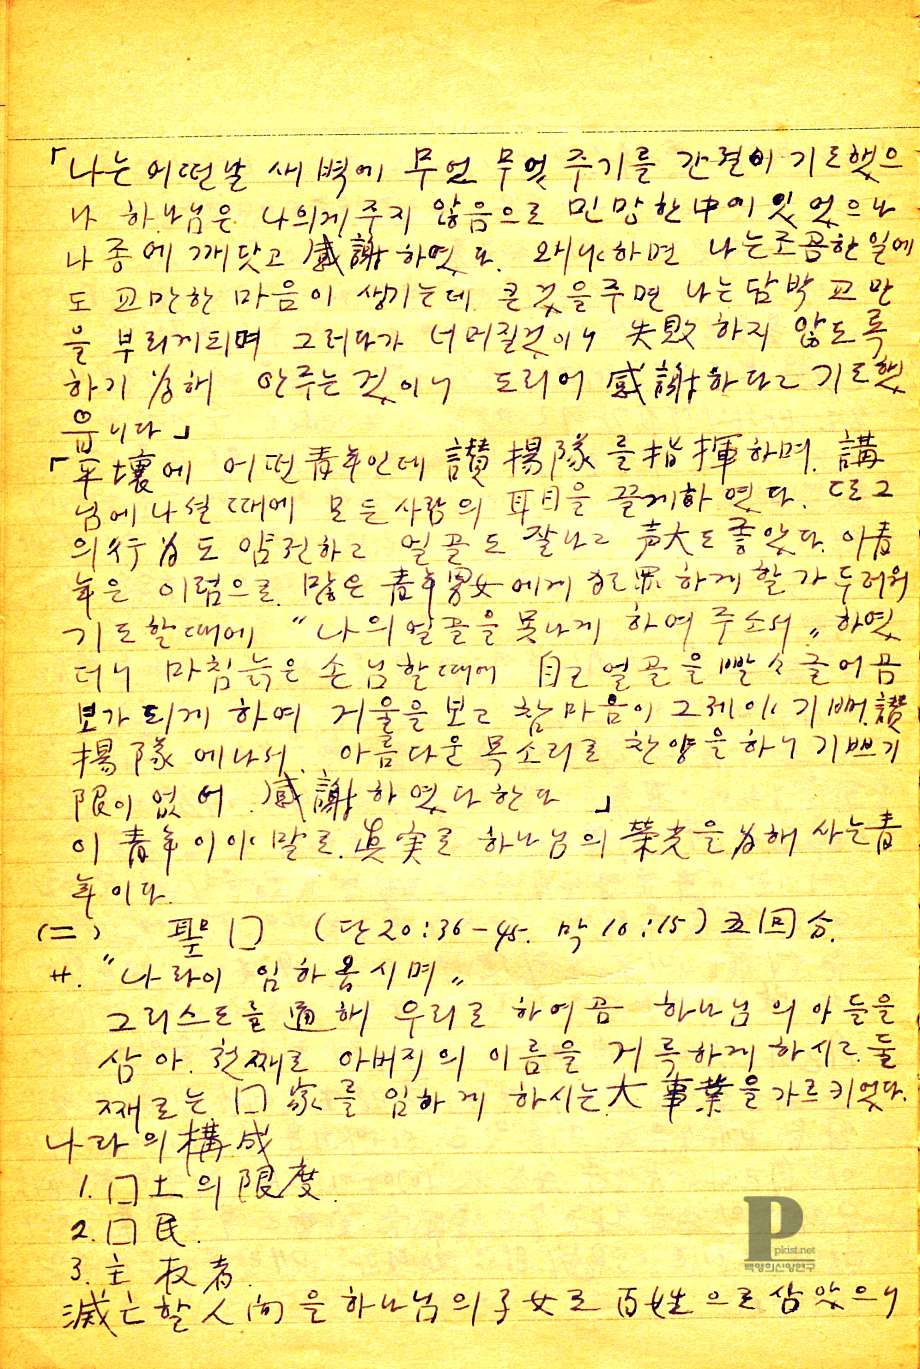 「나는 어떤날 새벽에 무엇 무엇 주기를 간절이 기도했으
나 하나님은 나의게 주지 않음으로 민망한 中에 있었으나
나종에 깨닷고 感謝하였다. 왜냐하면 나는 조곰한 일에
도 교만한 마음이 생기는데 큰 것을 주면 나는 담박 교만
을 부리게되며 그러다가 너머질것이니 失敗하지 않도록
하기 爲해 안주는 것이니 도리어 感謝하다고 기도했
읍니다」
「平壤에 어떤 靑年인데 讃揚隊를 指揮하며, 講
님에 나설 때에 모든 사람의 耳目을 끌게하였다. 또 그
의 行爲도 얌전하고 얼골도 잘나고 声大도 좋았다. 이 靑
年은 이럼으로 많은 靑年男女에게 犯罪하게 할가 두려워
기도할 때에 "나의 얼골을 못나게 하여 주소서" 하였
더니 마침 늙은 손님할 때에 自己 얼골을 빨스 글어 곰
보가 되게 하여 거울을 보고 참 마음이 그제야 기뻐, 讃
揚隊에 나서 아름다운 목소리로 찬양을 하니 기쁘기
限이 없어 感謝하였다 한다 」
이 靑年이야 말로 眞実로 하나님의 榮光을 爲해 사는 靑
年이다.
(二) 聖囗 (단 20:36-45. 막 10:15) 五囬合.
"나라이 임하옵시며"
그리스도를 通해 우리로 하여곰 하나님의 아들을
삼아. 첫째로 아버지의 이름을 거룩하게 하시고. 둘
째로는 囗家를 임하게 하시는 大事業을 가르키었다.
나라의 構成
1. 囗土의 限度.
2. 囗民.
3. 主权者.
滅亡할 人间을 하나님의 子女로 百姓으로 삼았으니
P
pkist.net
백영희신앙연구